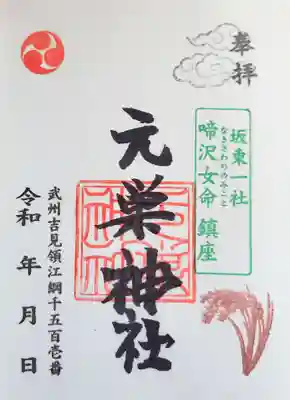 奉拝
坂東一社
なきさわめのみこと
啼沢女命 鎮座
元巣神社
武州吉見領江綱千五百壱番
令和 年 月 日